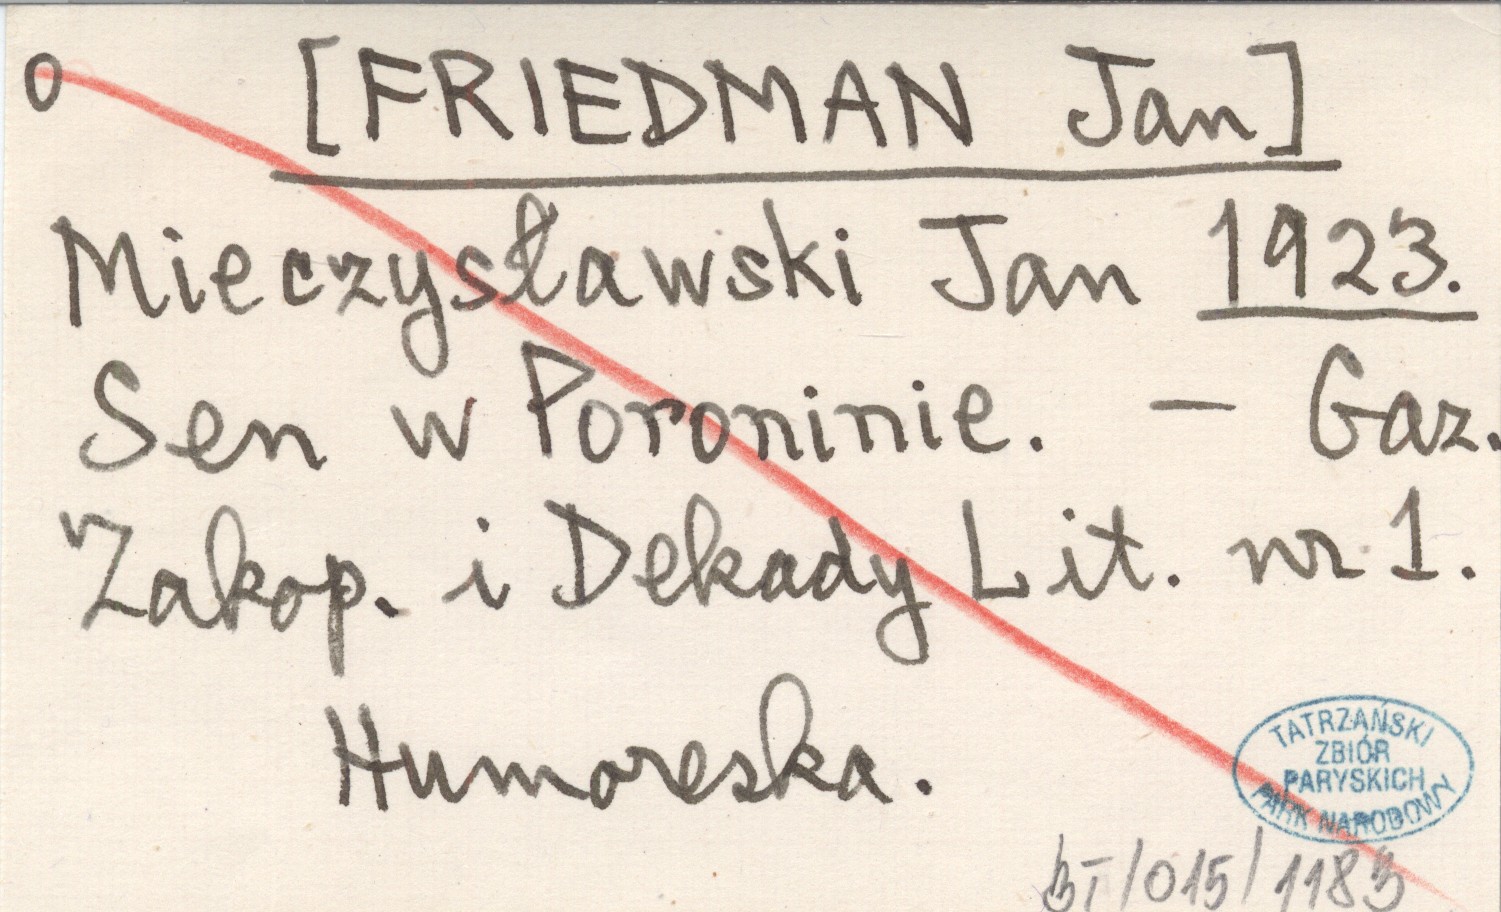 o [FRIEDMAN Jan]
Mieczysławski Jan 1923.
Sen w Poroninie. — Gaz.
Zakop. i Dekady Lit. nr 1.
Humoreska.
TATRZAŃSKI
ZBIÓR
PARYSKICH
PARK NARODOWY
BT/015/1183